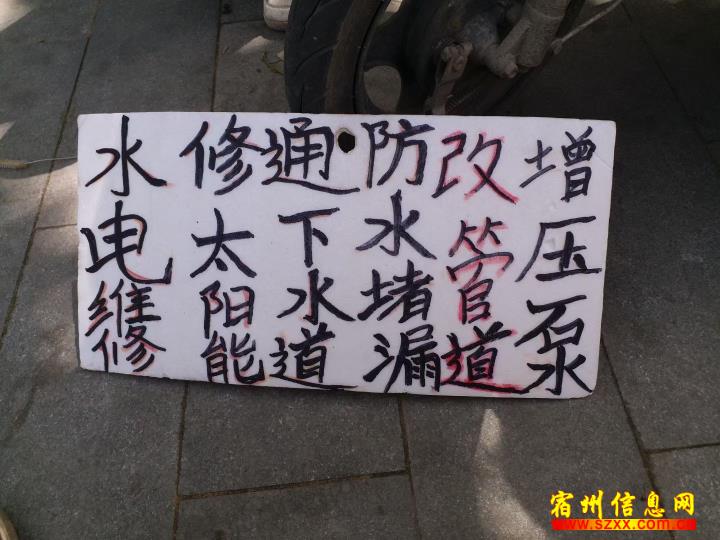 水电维修
修太阳能
通下水道
防水堵漏
改管道
增压泵
宿州信息网
www.szxx.com.cn